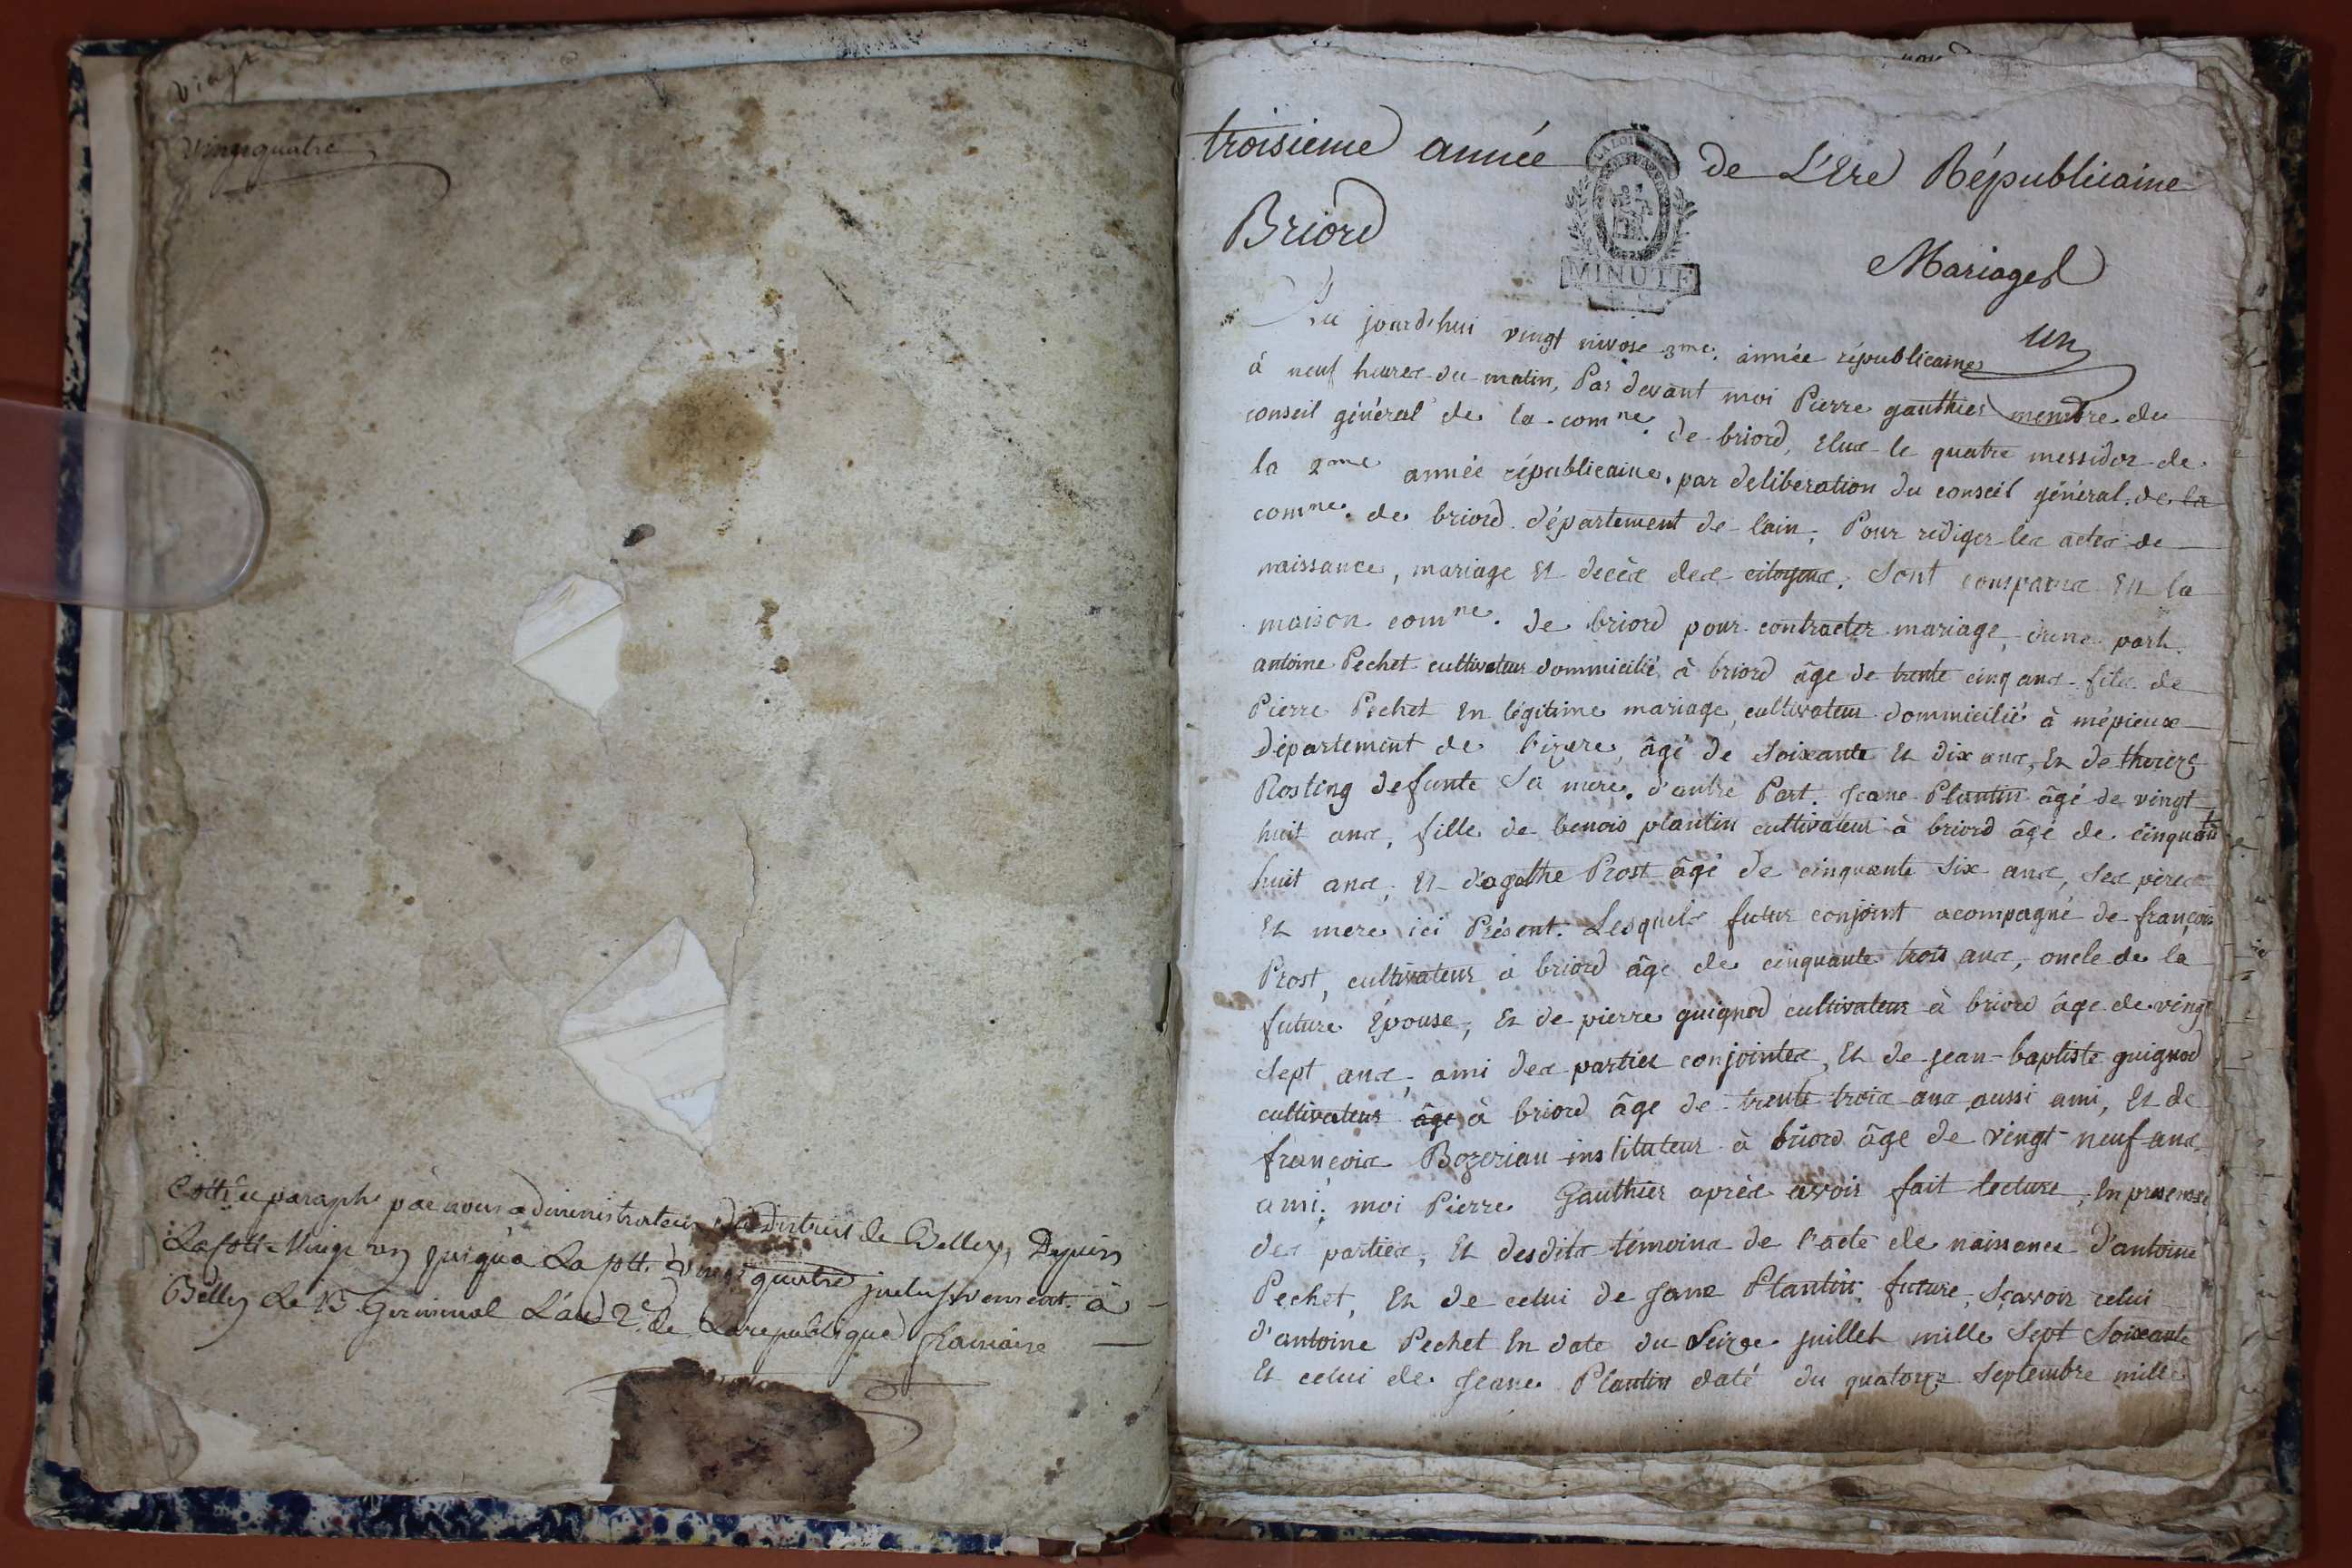 vingt
vingtquatre
Cotté et paraphé par nous administrateur du district de Belley, Depuis
La cotte Vingt un jusqu'a La cotte vingt quatre inclusivement. à
Belley Le 15 Germinal L'an 2e de La republique
troisieme année de L'Ere Républicaine
LA LOI
MINUTE
Briord
Mariages
un
Au jourd'hui vingt nivose 3me. année républicaine
à neuf heures du matin, Par devant moi Pierre gauthier membre du
conseil général de la comne. de briord, Elus le quatre messidor de
la 2me année républicaine, par deliberation du conseil général de la
comne. de briord département de lain, Pour rediger les actes de
naissance, mariage Et decès des citoyens. Sont comparus En la
maison comne. de briord pour contracter mariage, d'une part.
antoine Pechet cultivateur dommicilié à briord âge de trente cinq ans fils de
Pierre Pechet En légitime mariage, cultivateur dommicilié à mépieux
Département de lizere, âgé de Soixante Et dix ans, Et de
Rosting defunte Sa mere. d'autre Part. Jeane Plantin âgé de vingt
huit ans, fille de benois plantin cultivateur à briord âgé de cinquante
huit ans, Et d'agathe Prost âgé de cinquante Six ans, Ses peres
Et mere ici Présent. Lesquels futur conjoint acompagné de françois
Prost, cultivateur à briord âge de cinquante trois ans, oncle de la
future Epouse, Et de pierre guignod cultivateur à briord âge de vingt
Sept ans, ami des parties conjointes, Et de jean-baptiste guignod
cultivateur âge à briord âge de trente trois ans aussi ami, Et de
françois Bozerian instituteur à briord âge de vingt neuf ans
ami; moi Pierre Gauthier après avoir fait lecture, En presense
des parties, Et desdits témoins de l'acte de naissance d'antoine
Pechet, Et de celui de Jane Plantin, future, Sçavoir celui
d'antoine Pechet En date du Seize juillet mille Sept Soixante
Et celui de Jeane Plantin daté du quatorze Septembre mille